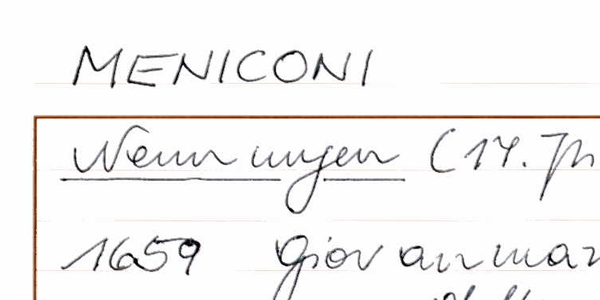 MENICONI
Nennungen (17. Jh
1659 Giovanmar